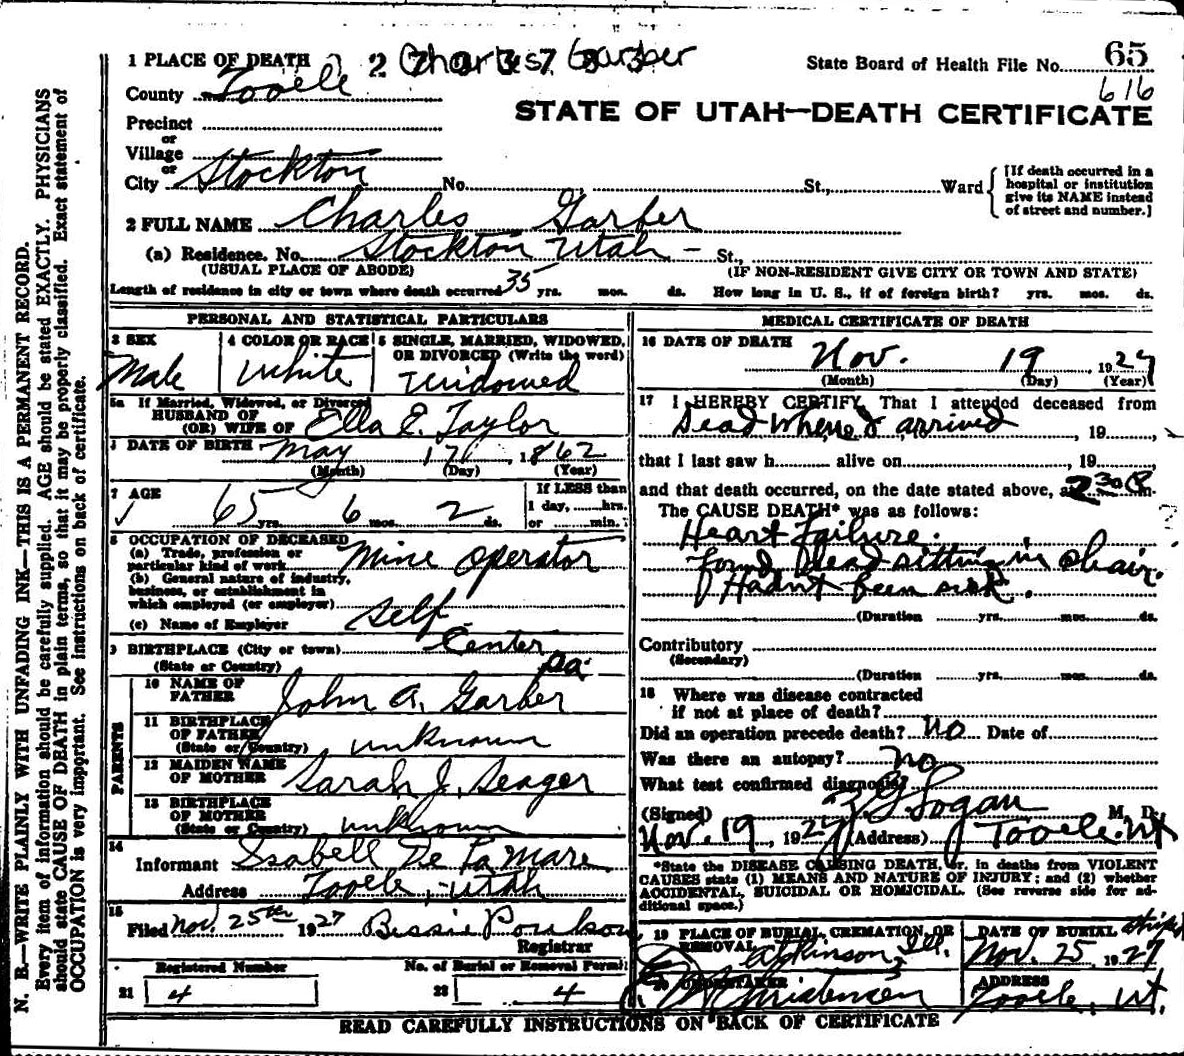 1 PLACE OF DEATH
Charles Garber
State Board of Health File No. 65
616
County Tooele
STATE OF UTAH—DEATH CERTIFICATE
Precinct
or
Village
or
City Stockton No. St., Ward
[If death occurred in a hospital or institution give its NAME instead of street and number.]
2 FULL NAME Charles Garber
(a) Residence. No. Stockton Utah - St.,
(USUAL PLACE OF ABODE) (IF NON-RESIDENT GIVE CITY OR TOWN AND STATE)
Length of residence in city or town where death occurred 35 yrs. mos. ds. How long in U. S., if of foreign birth? yrs. mos. ds.
PERSONAL AND STATISTICAL PARTICULARS
3 SEX
Male
4 COLOR OR RACE
White
5 SINGLE, MARRIED, WIDOWED,
OR DIVORCED (Write the word)
Widowed
5a If Married, Widowed, or Divorced
HUSBAND OF
(OR) WIFE OF Ella E. Taylor
DATE OF BIRTH May 17 1862
(Month) (Day) (Year)
7 AGE
65 yrs. 6 mos. 2 ds.
If LESS than
1 day, hrs.
or min.
8 OCCUPATION OF DECEASED
(a) Trade, profession or
particular kind of work Mine Operator
(b) General nature of industry,
business, or establishment in
which employed (or employer)
(c) Name of Employer Self
9 BIRTHPLACE (City or town) Center
(State or Country) Pa.
PARENTS
10 NAME OF
FATHER John A. Garber
11 BIRTHPLACE
OF FATHER
(State or Country) unknown
12 MAIDEN NAME
OF MOTHER Sarah J. Seager
13 BIRTHPLACE
OF MOTHER
(State or Country) unknown
14
Informant Isabell De La Mare
Address Tooele, Utah
15
Filed Nov. 25th 1927 Bessie
Registrar
Registered Number No. of Burial or Removal Permit
21 4 22 4
MEDICAL CERTIFICATE OF DEATH
16 DATE OF DEATH
Nov. 19, 1927
(Month) (Day) (Year)
17 I HEREBY CERTIFY, That I attended deceased from
Dead when I arrived, 19
that I last saw h alive on, 19
and that death occurred, on the date stated above, at 2 30 P m.
The CAUSE DEATH* was as follows:
Heart Failure.
Found dead sitting in chair.
Hadn't been sick.
(Duration yrs. mos. ds.
Contributory
(Secondary)
(Duration yrs. mos. ds.
18 Where was disease contracted
if not at place of death?
Did an operation precede death? no Date of
Was there an autopsy? no
What test confirmed diagnosis?
(Signed) Logan M. D.
Nov. 19, 1927 (Address) Tooele. Ut
*State the DISEASE CAUSING DEATH, or, in deaths from VIOLENT
CAUSES state (1) MEANS AND NATURE OF INJURY; and (2) whether
ACCIDENTAL, SUICIDAL OR HOMICIDAL. (See reverse side for ad-
ditional space.)
19 PLACE OF BURIAL, CREMATION, OR
REMOVAL Atkinson, Ill.
DATE OF BURIAL
Nov. 25 1927
20 UNDERTAKER
Christensen
ADDRESS
Tooele, Ut.
READ CAREFULLY INSTRUCTIONS ON BACK OF CERTIFICATE
N. B.—WRITE PLAINLY WITH UNFADING INK—THIS IS A PERMANENT RECORD.
Every item of information should be carefully supplied. AGE should be stated EXACTLY. PHYSICIANS
should state CAUSE OF DEATH in plain terms, so that it may be properly classified. Exact statement of
OCCUPATION is very important. See instructions on back of certificate.